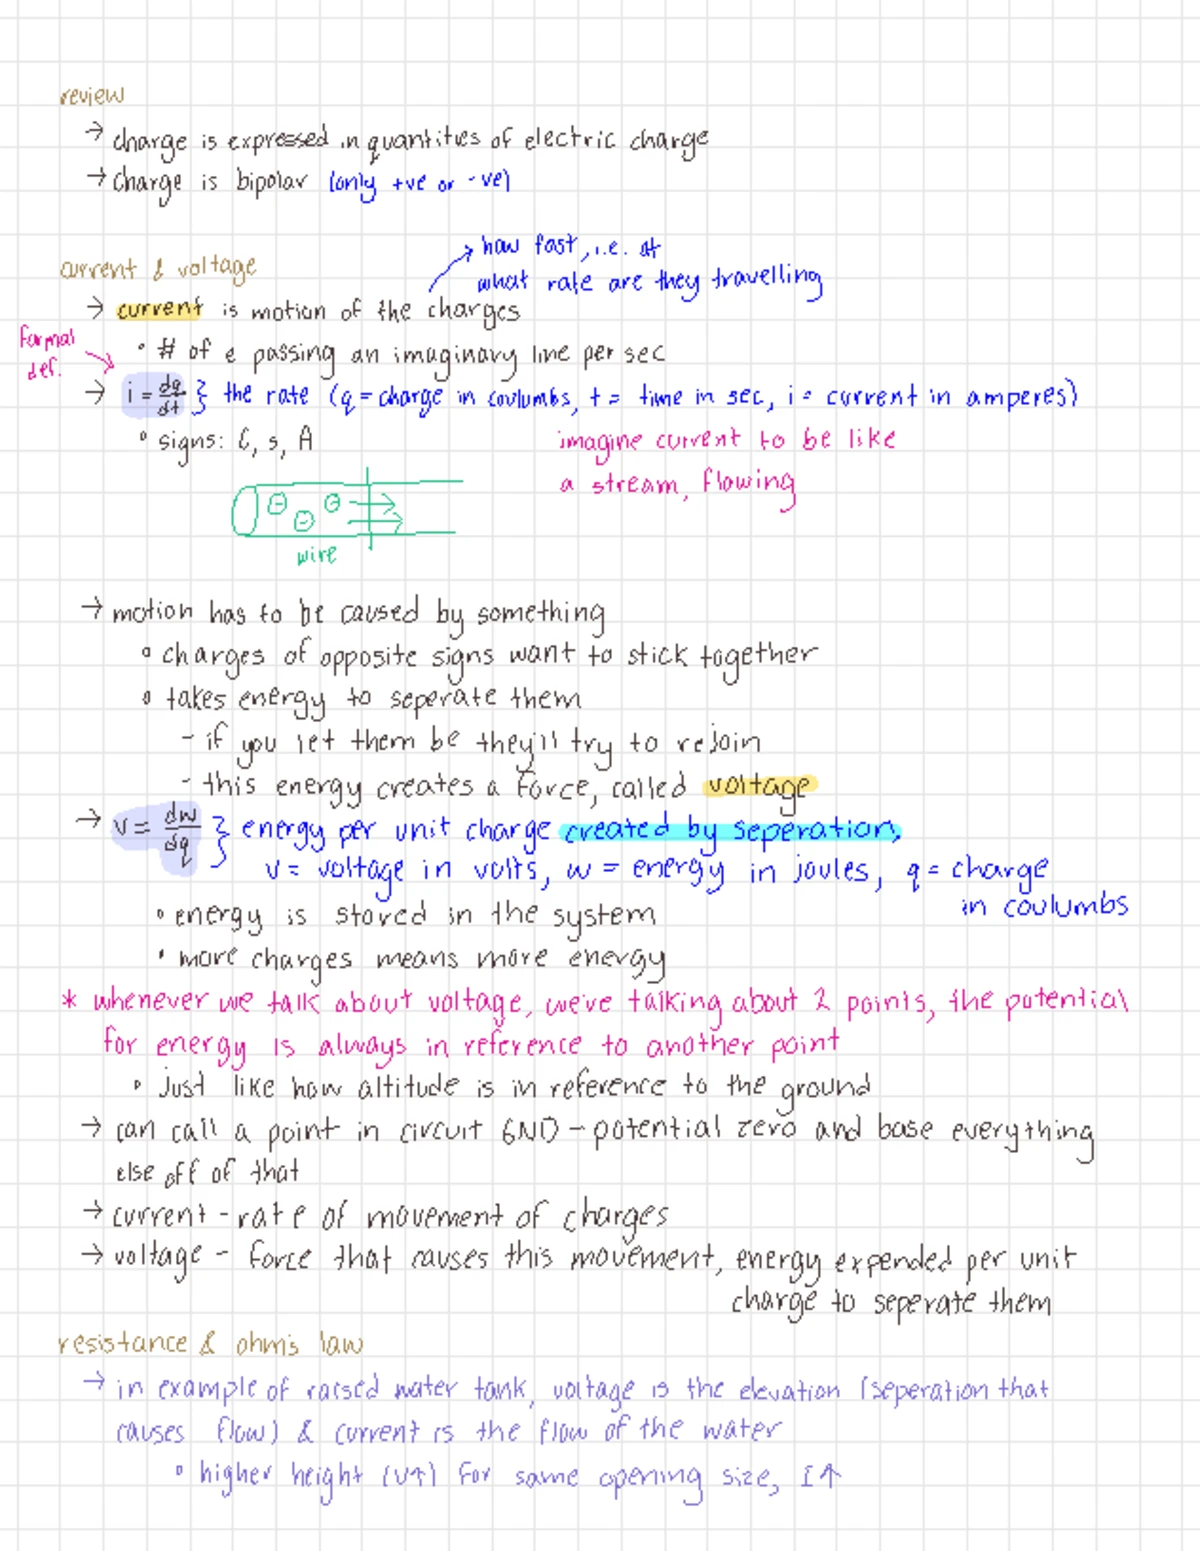 review
→ charge is expressed in quantities of electric charge
→ charge is bipolar (only +ve or -ve)
current & voltage
how fast, i.e. at
what rate are they travelling
→ current is motion of the charges
formal
def.
• # of e passing an imaginary line per sec
→ i = dq/dt } the rate (q = charge in coulumbs, t = time in sec, i = current in amperes)
• signs: C, s, A
imagine current to be like
a stream, flowing
wire
→ motion has to be caused by something
• charges of opposite signs want to stick together
• takes energy to seperate them
- if you let them be they'll try to rejoin
- this energy creates a force, called voltage
→ v = dw/dq } energy per unit charge created by seperation,
v = voltage in volts, w = energy in joules, q = charge
in coulumbs
• energy is stored in the system
• more charges means more energy
* whenever we talk about voltage, we're talking about 2 points, the potential
for energy is always in reference to another point
• just like how altitude is in reference to the ground
→ can call a point in circuit GND - potential zero and base everything
else off of that
→ current - rate of movement of charges
→ voltage - force that causes this movement, energy expended per unit
charge to seperate them
resistance & ohm's law
→ in example of raised water tank, voltage is the elevation (seperation that
causes flow) & current is the flow of the water
• higher height (V↑) for same opening size, I↑